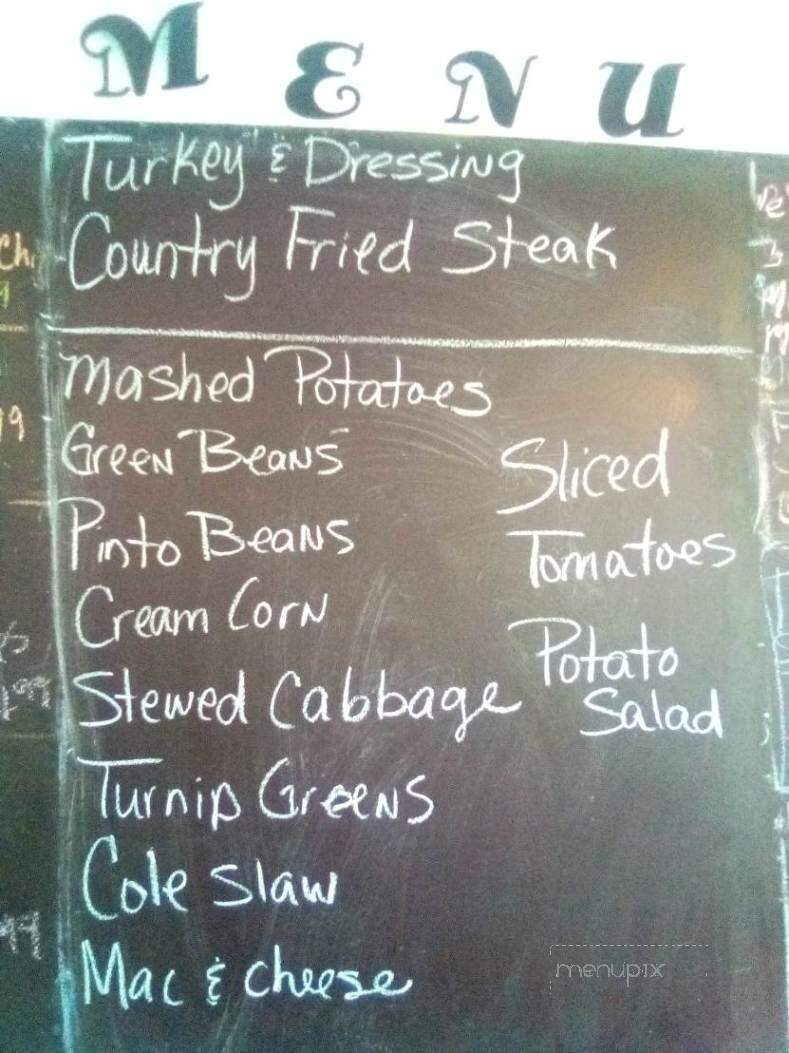 MENU
Turkey & Dressing
Country Fried Steak
Mashed Potatoes
Green Beans
Pinto Beans
Cream Corn
Stewed Cabbage
Turnip Greens
Cole Slaw
Mac & Cheese
Sliced
Tomatoes
Potato
Salad
Ch
9
19
99
99
menupix